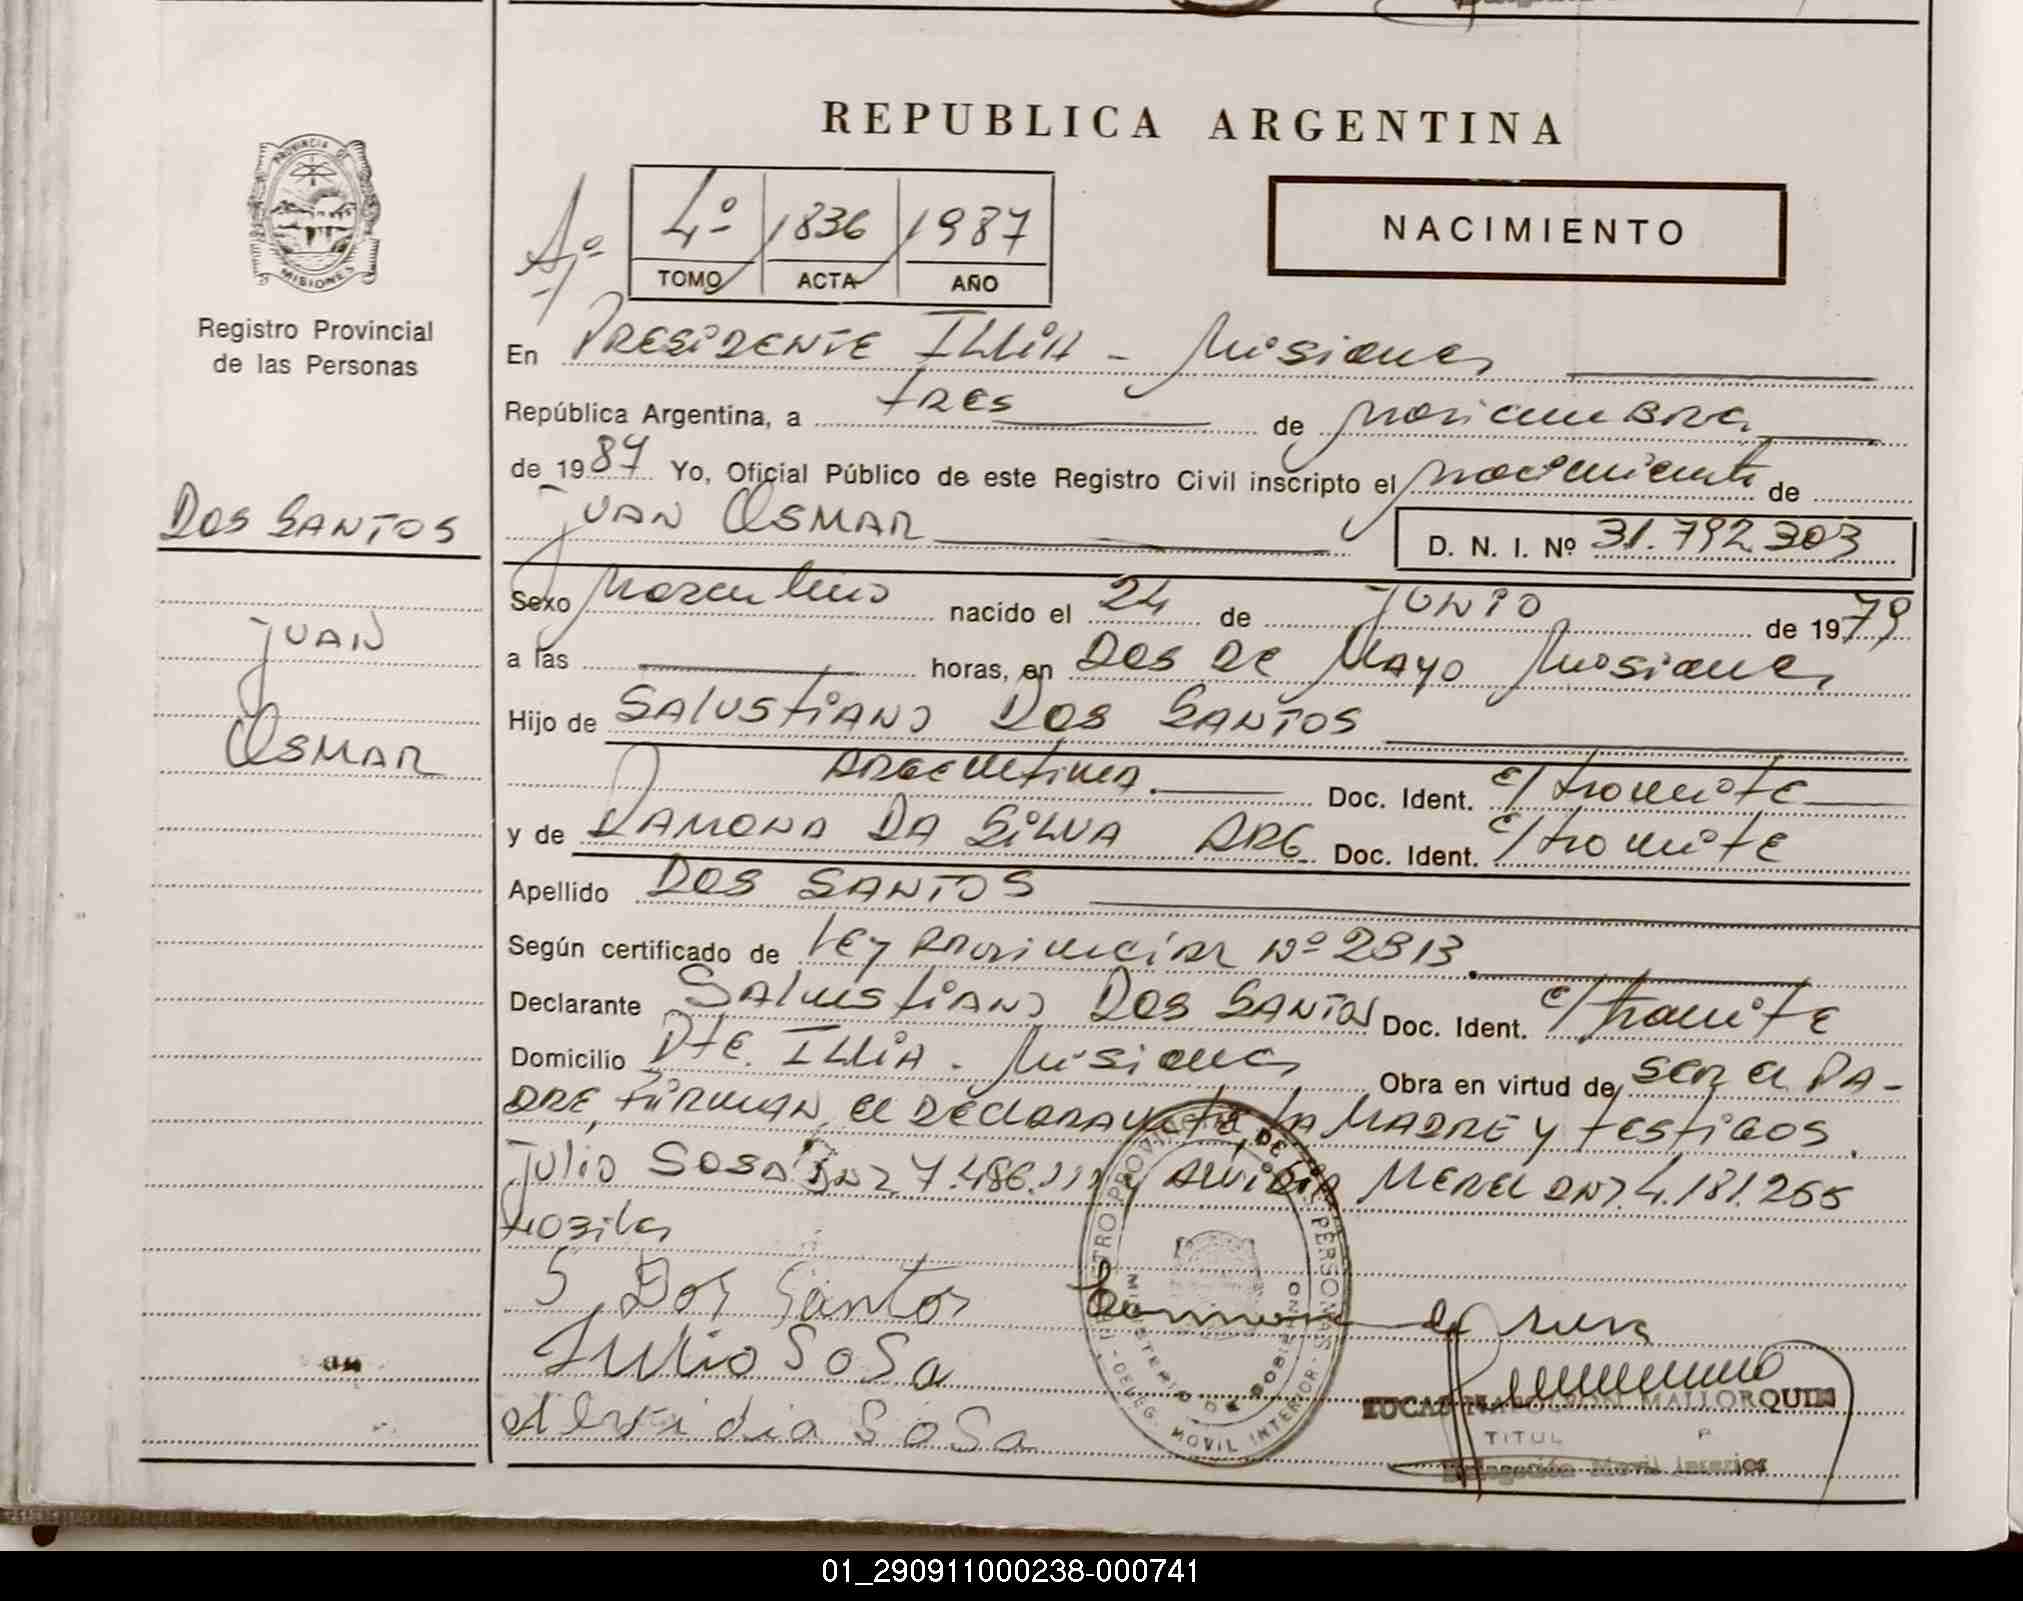 REPUBLICA ARGENTINA
PROVINCIA DE
MISIONES
Registro Provincial
de las Personas
4º 1836 1987
TOMO ACTA AÑO
NACIMIENTO
En PRESIDENTE ILLIA - Misiones
República Argentina, a tres de noviembre
de 1987 Yo, Oficial Público de este Registro Civil inscripto el nacimiento de
JUAN OSMAR
D. N. I. Nº 31.792.303
DOS SANTOS
JUAN
OSMAR
Sexo Masculino nacido el 24 de JUNIO de 1979
a las horas, en DOS DE MAYO Misiones
Hijo de SALUSTIANO DOS SANTOS
ARGENTINA. Doc. Ident. e/tramite
y de RAMONA DA SILVA ARG. Doc. Ident. e/tramite
Apellido DOS SANTOS
Según certificado de Ley Provincial Nº 2313.
Declarante Salustiano DOS SANTOS Doc. Ident. e/tramite
Domicilio Pte. ILLIA. Misiones Obra en virtud de ser el PA-
DRE, FIRMAN el DECLARANTE LA MADRE y testigos
Julio SOSA 7.486.111 y MEREL 4.181.255
S. Dos Santos
Julio SoSa
SoSa
REGISTRO PROVINCIAL DE LAS PERSONAS
MINISTERIO DE GOBIERNO
DELEG. MOVIL INTERIOR
LUCAS NAPOLEON MALLORQUIN
TITUL
Delegación Movil Interior
01_290911000238-000741